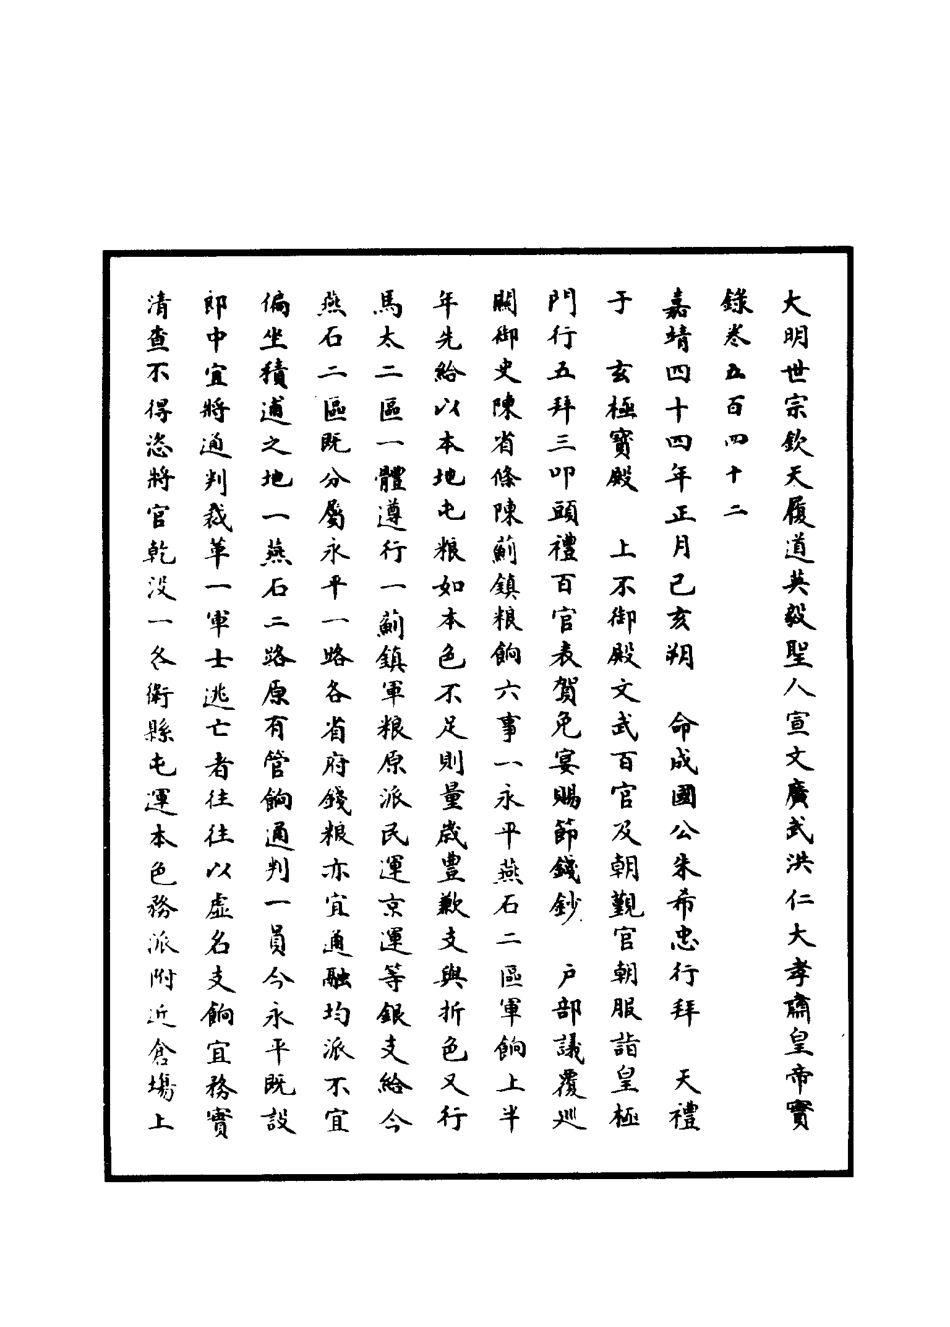 大明世宗欽天履道英毅聖人宣文廣武洪仁大孝肅皇帝實
錄卷五百四十二
嘉靖四十四年正月己亥朔　命成國公朱希忠行拜　天禮
于　玄極寳殿　上不御殿文武百官及朝覲官朝服詣皇極
門行五拜三叩頭禮百官表賀免宴賜節錢鈔　戶部議覆巡
關御史陳省條陳薊鎮粮餉六事一永平燕石二區軍餉上半
年先給以本地屯粮如本色不足則量歲豊歉支與折色又行
馬太二區一體遵行一薊鎮軍粮原派民運京運等銀支給今
燕石二區既分屬永平一路各省府錢粮亦宜通融均派不宜
偏坐積逋之地一燕石二路原有管餉通判一員今永平既設
郎中宜將通判裁革一軍士逃亡者往往以虛名支餉宜務實
清查不得恣將官乾没一各衛縣屯運本色務派附近倉塲上